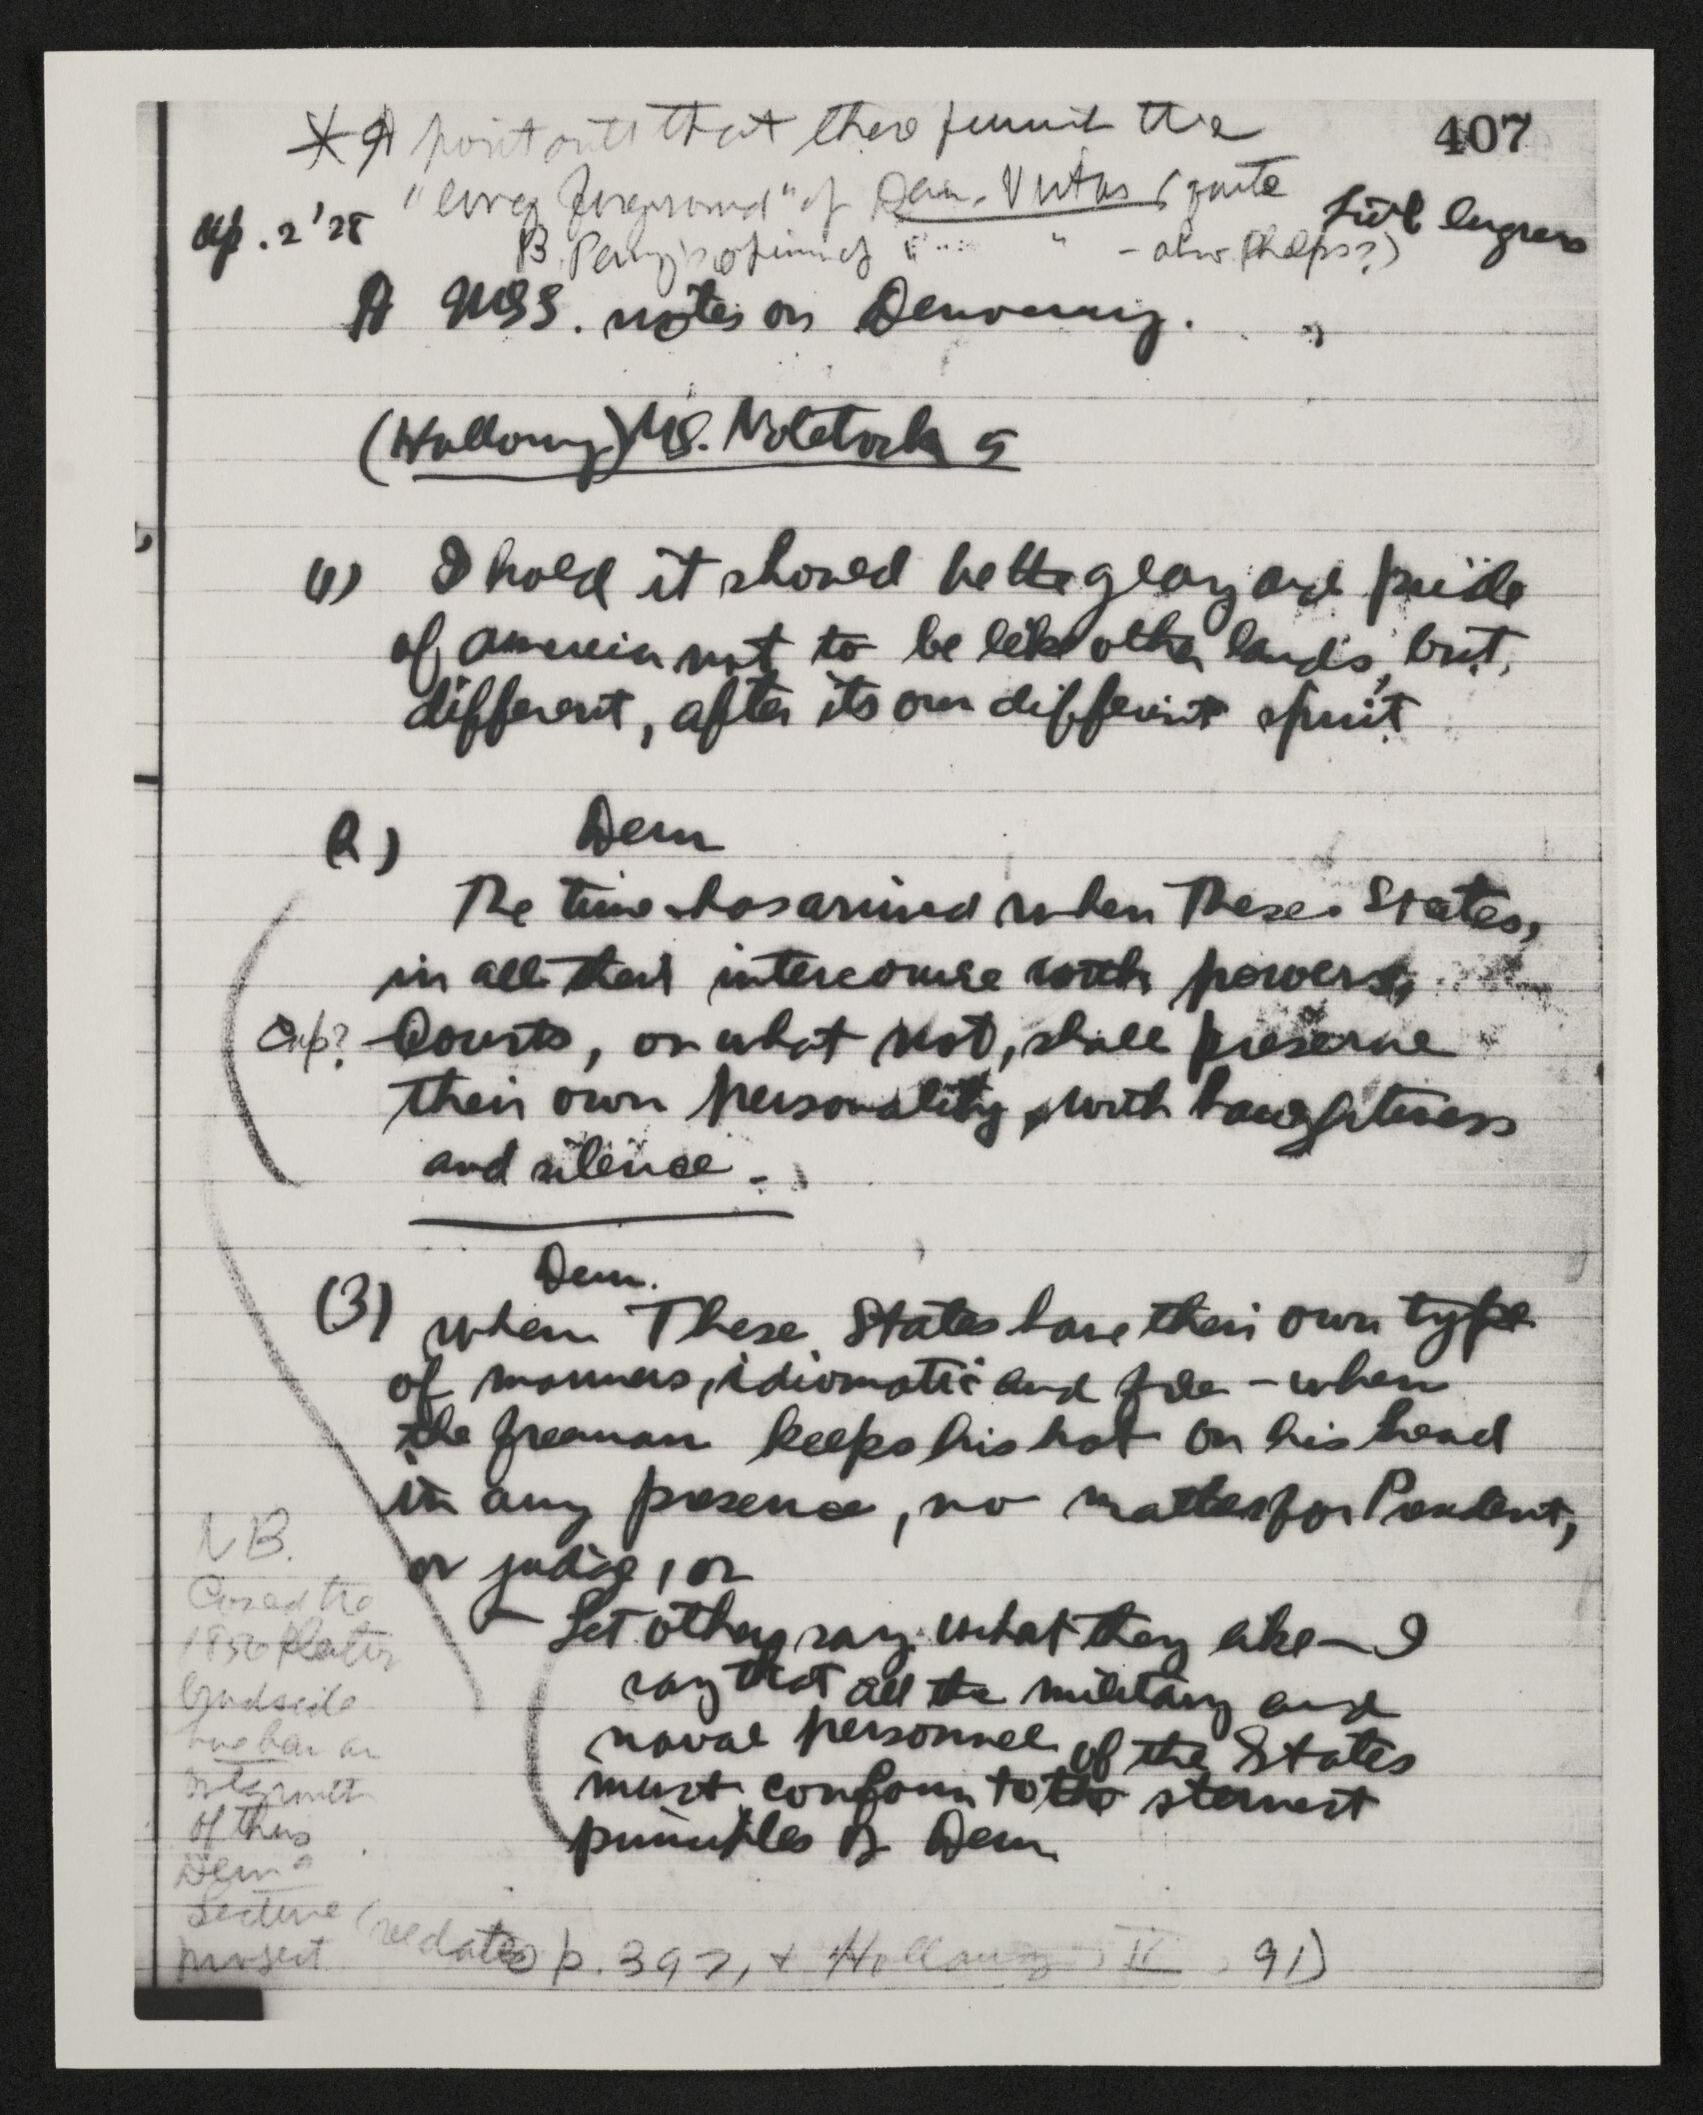 407
point out that these furnish the
"long foreground" of Dem. Vistas (quote
B. Perry's opinion of " " - also Phelps?)
Ap. 2 '28
Lib Congress
MSS. notes on Democracy.
(Holloway) MS. Notebook 5
(1) I hold it should be the glory and pride
of America not to be like other lands, but,
different, after its own different spirit
(2) Dem
The time has arrived when These States,
in all their intercourse with powers,
Cap? Courts, or what not, shall preserve
their own personality, with haughtiness
and silence -
Dem.
(3) when These States have their own type
of manners, idiomatic and free - when
the freeman keeps his hat on his head
in any presence, no matter for President,
or judge, or
Let others say what they like - I
say that all the military and
naval personnel of the States
must conform to the sternest
principles of Dem
N B.
Could the
broadside
have been an
of this
Dem
Lecture
project
(see dates p. 397, + Holloway, II, 91)